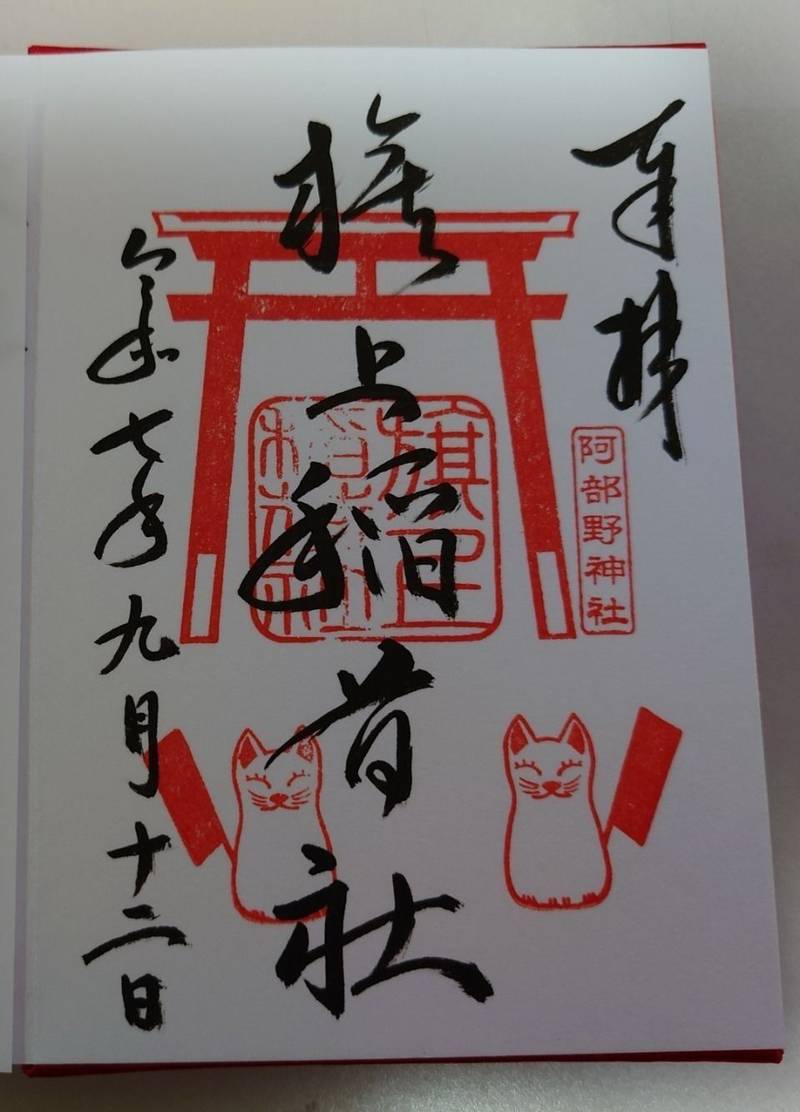 奉拝
阿部野神社
旗上稲荷社
令和七年九月十二日